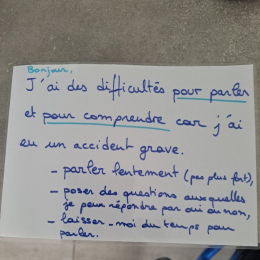 Bonjour,
J'ai des difficultés pour parler
et pour comprendre car j'ai
eu un accident grave.
- parler lentement (pas plus fort),
- poser des questions auxquelles
je peux répondre par oui ou non,
- laisser-moi du temps pour
parler.